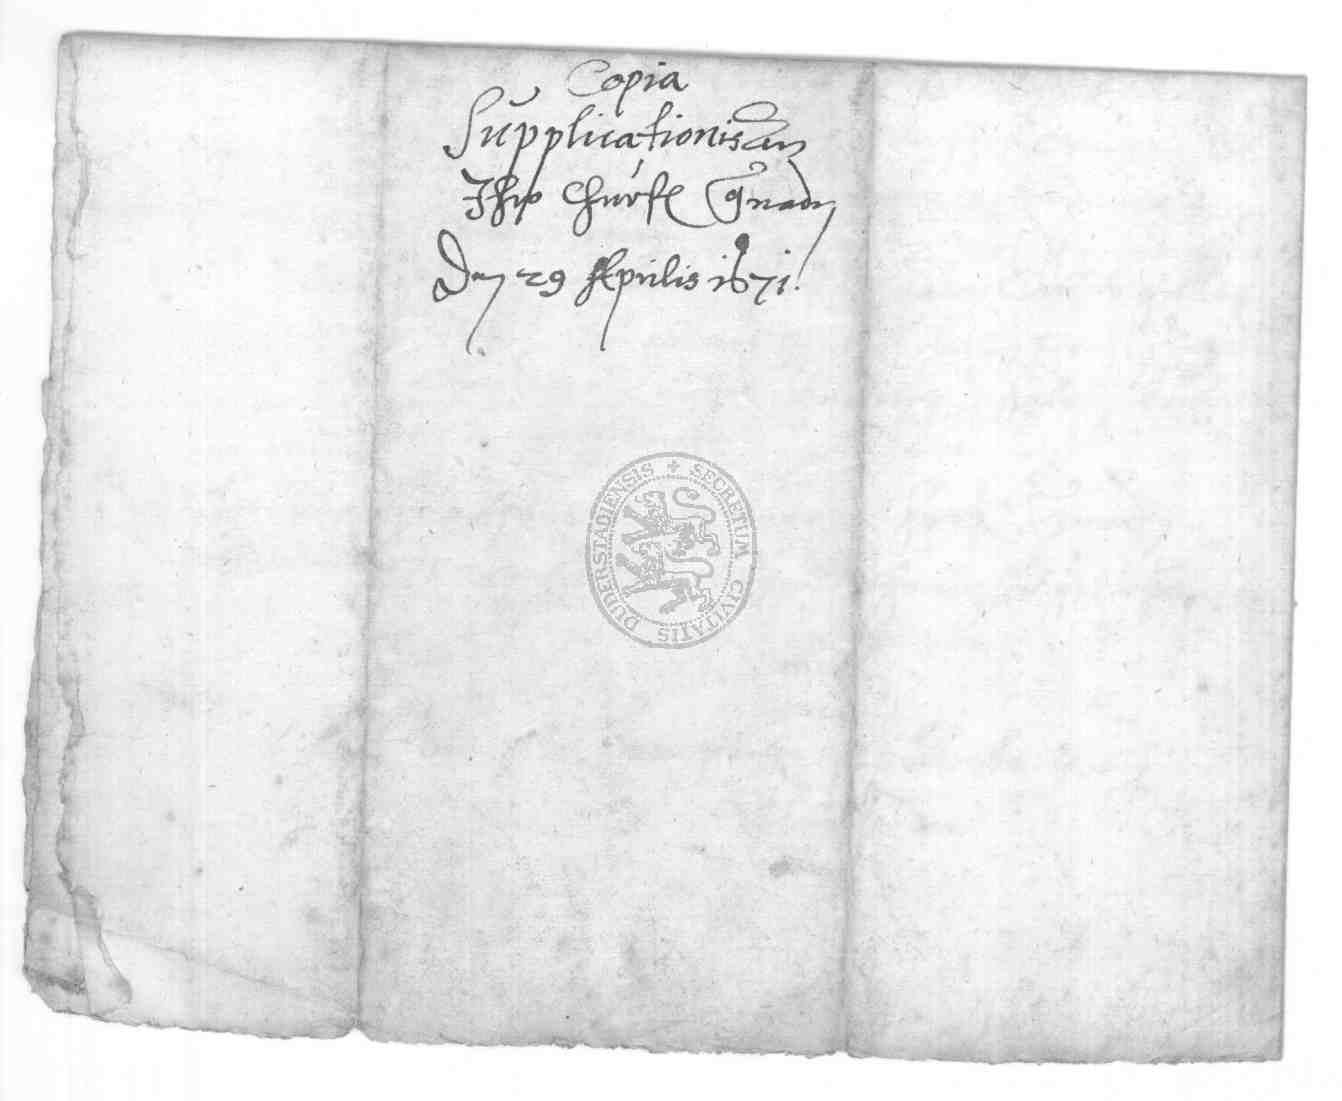 Copia
Supplicationis an
Ihre Churfl Gnadn
Den 29 Aprilis 1671.
SECRETUM CIVITATIS DUDERSTADIENSIS